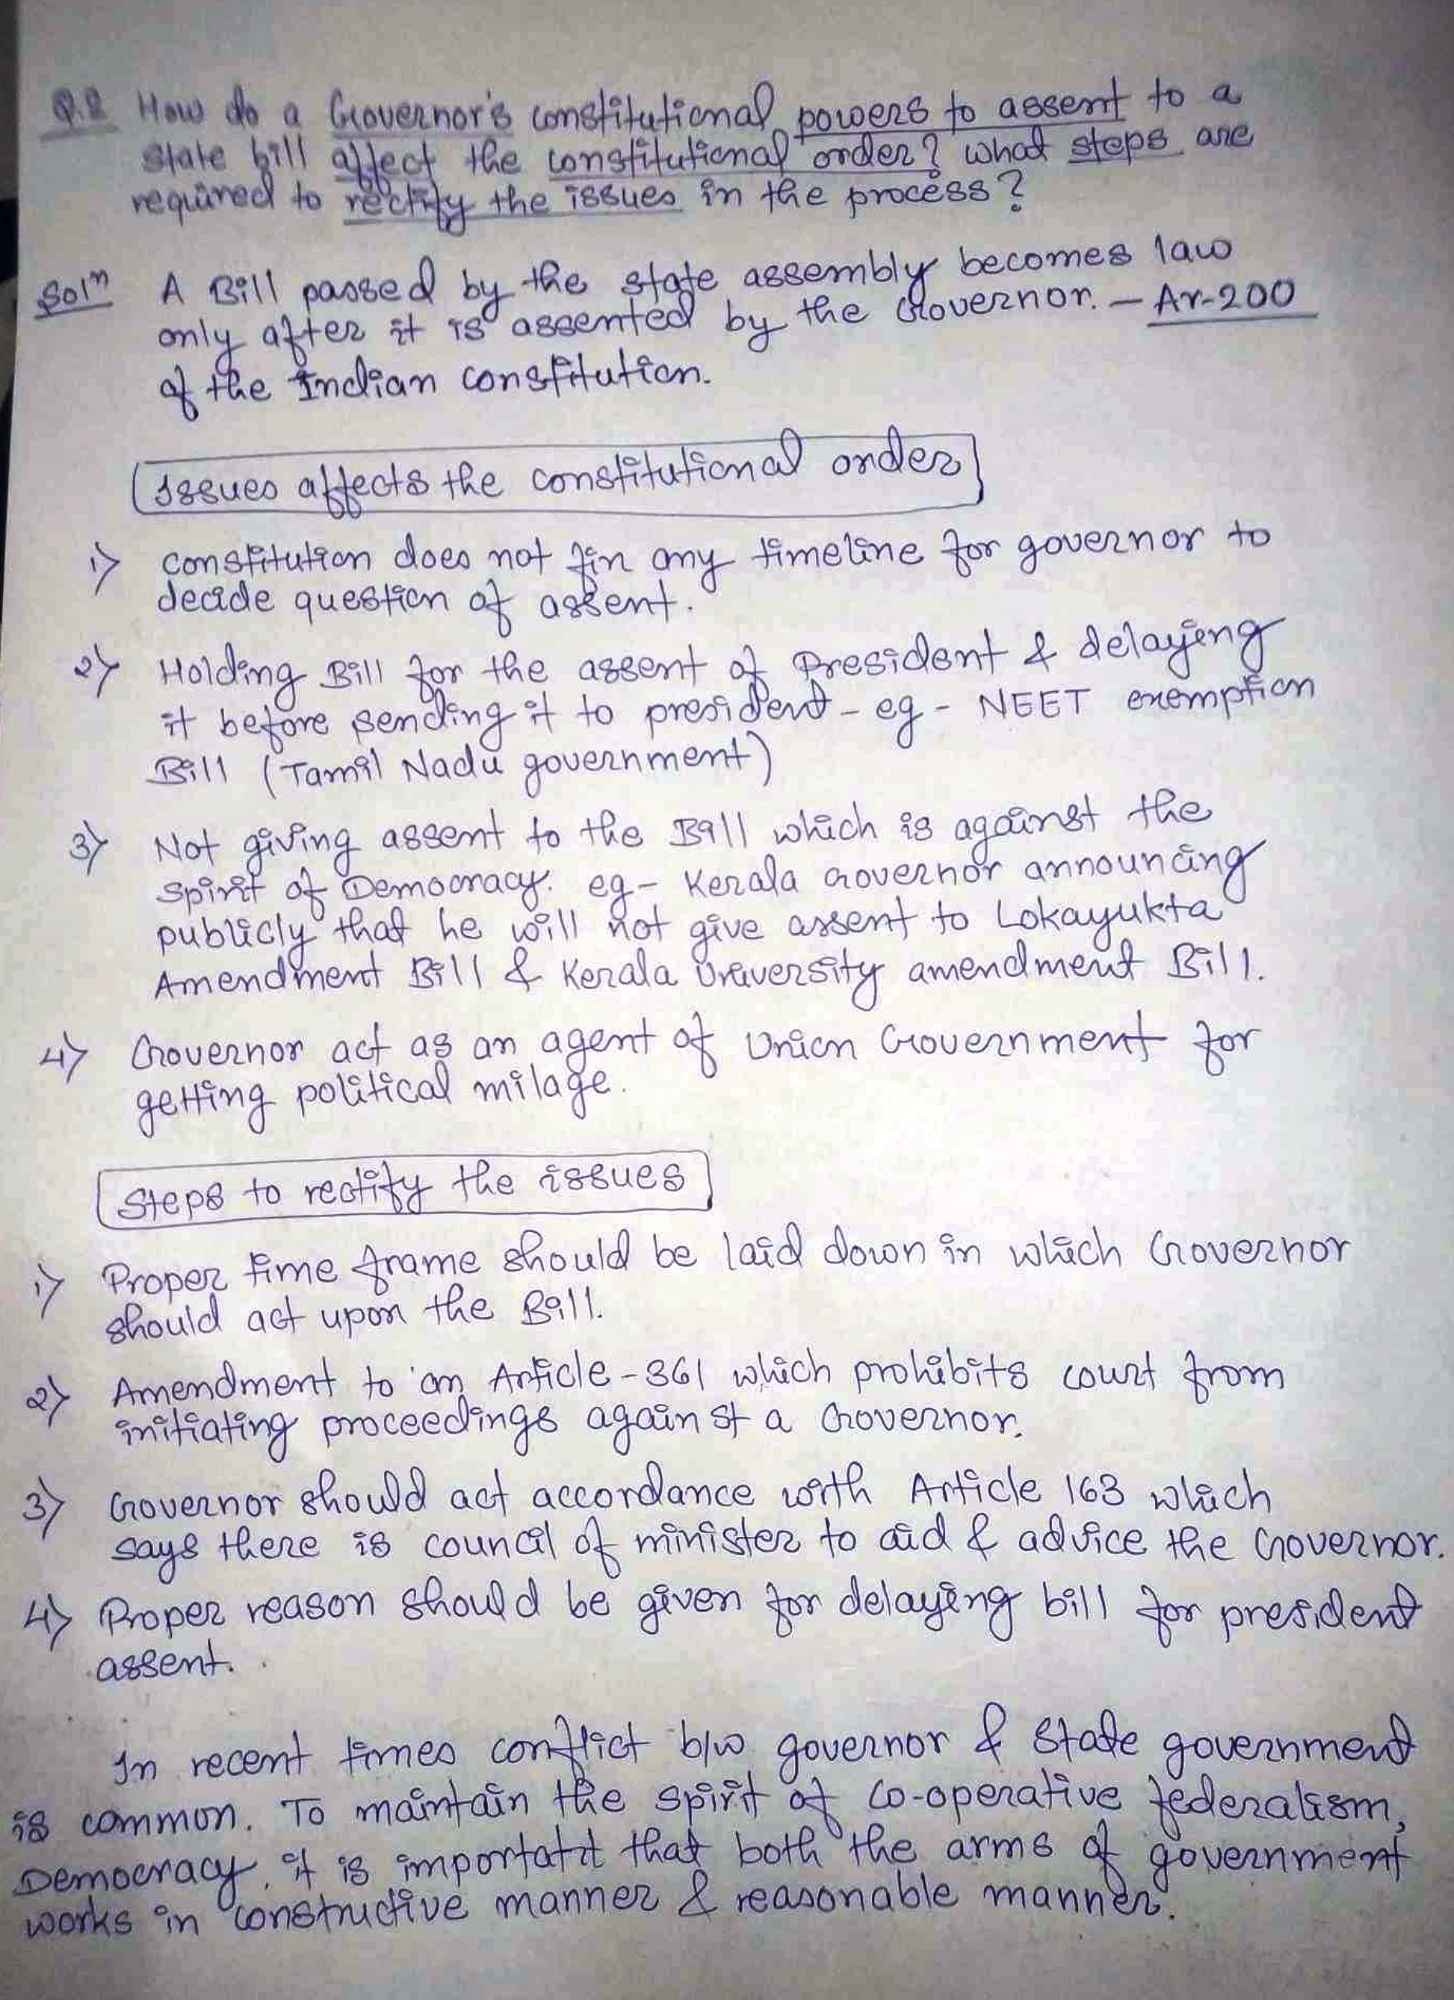 Q.2 How do a Governor's constitutional powers to assent to a
state bill affect the constitutional order? what steps are
required to rectify the issues in the process?
Solⁿ A Bill passed by the state assembly becomes law
only after it is assented by the Governor. – Ar-200
of the Indian constitution.
Issues affects the constitutional order
1) constitution does not fix any timeline for governor to
decide question of assent.
2) Holding Bill for the assent of President & delaying
it before sending it to president – eg – NEET exemption
Bill (Tamil Nadu government)
3) Not giving assent to the Bill which is against the
spirit of Democracy. eg – Kerala Governor announcing
publicly that he will not give assent to Lokayukta
Amendment Bill & Kerala University amendment Bill.
4) Governor act as an agent of Union Government for
getting political milage.
Steps to rectify the issues
1) Proper time frame should be laid down in which Governor
should act upon the Bill.
2) Amendment to an Article-361 which prohibits court from
initiating proceedings against a Governor.
3) Governor should act accordance with Article 163 which
says there is council of minister to aid & advice the Governor.
4) Proper reason should be given for delaying bill for president
assent.
In recent times conflict b/w governor & state government
is common. To maintain the spirit of co-operative federalism,
Democracy, it is importatnt that both the arms of government
works in constructive manner & reasonable manner.